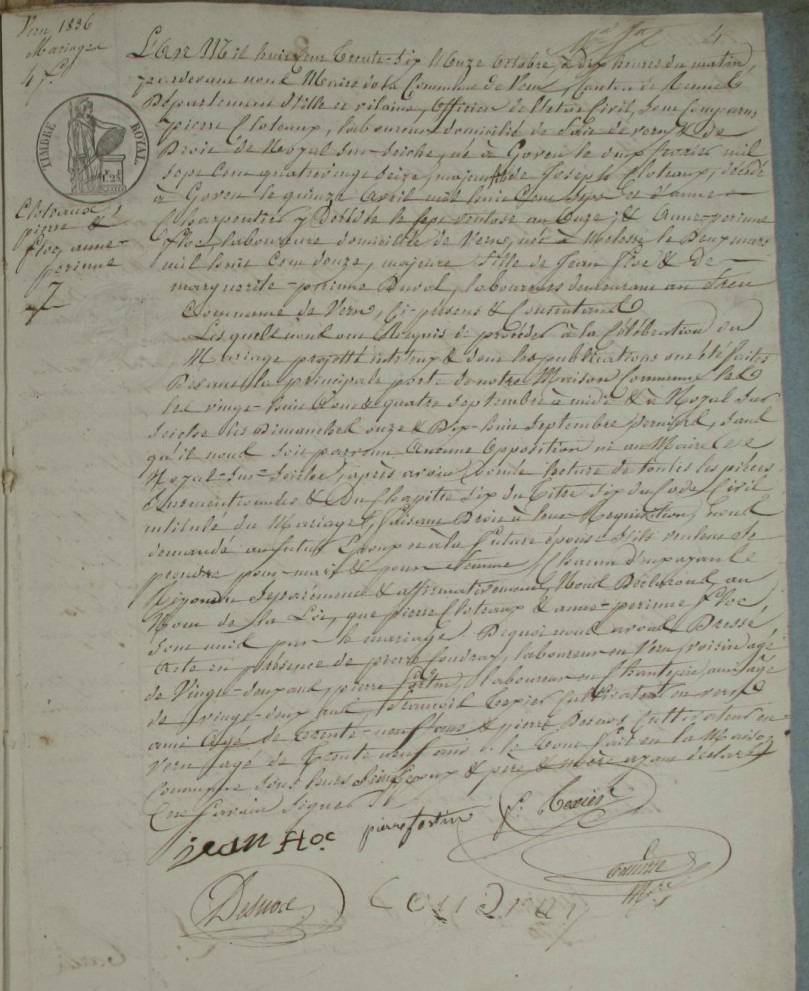 Vern 1836
Mariages
4 f.
TIMBRE ROYAL
Cloteaux
pierre &
Floc, anne-
perinne
7
4
L'an Mil huit cent Trente-six Le onze octobre à dix heures du matin,
pardevant nous Maire de la Commune de Vern, Canton de Rennes
Département d'Ille et vilaine, officier de l'état Civil, sont comparus
pierre Cloteaux, laboureur domicilié de fait de vern & de
Droit de Noyal sur-seiche, né à Goven le onze fevrier mil
sept Cent quatrevingt seize, majeur fils de Joseph Cloteaux, décédé
à Goven le quinze avril mil huit Cent sept et d'anne
Charpentier y Décédée le sept ventose an onze; & Anne-perinne
Floc, laboureure domiciliée de Vern, née à Melesse le Deux mars
mil huit Cent douze, majeure fille de Jean Floc & de
marguerite-perinne Duval, laboureurs demeurant au
Commune de Vern, Ci-présens & Consentans
Lesquels nous ont Requis de procéder à la Célébration du
Mariage projetté entr'eux & dont les publications ont été faites
Devant la principale porte de notre Maison Commune les
vingt-huit aout & quatre septembre à midi & à Noyal sur
seiche les Dimanches onze & Dix-huit septembre dernier, sans
qu'il nous soit parvenu aucune opposition ni au Maire de
Noyal-sur-seiche; après avoir Donné lecture de toutes les pièces
& Du Chapitre six du Titre six du Code Civil
intitulé du Mariage, faisant Droit à leur Requisition, nous
demandé au futur Epoux et à la future épouse s'ils veulent se
prendre pour mari & pour femme, Chacun d'eux ayant
Répondu séparément & affirmativement, Nous Déclarons au
Nom de la Loi, que pierre Cloteaux & anne-perinne Floc
sont unis par le mariage. De quoi nous avons Dressé
acte en présence de pierre Coudray, laboureur en Vern, voisin agé
de Vingt-deux ans, pierre fortin, laboureur en Chantepie, ami agé
de vingt-deux ans, francois Texier Cultivateur en vern
ami agé de trente-neuf ans & pierre Desnos Cultivateur en
Vern agé de Trente neuf ans. Le tout fait en la Maison
Commune sous leurs seings, Epoux & père & mère ayant déclaré
ne savoir signer
jean floc pierre fortin f. Texier
Desnos Coudray
M.re